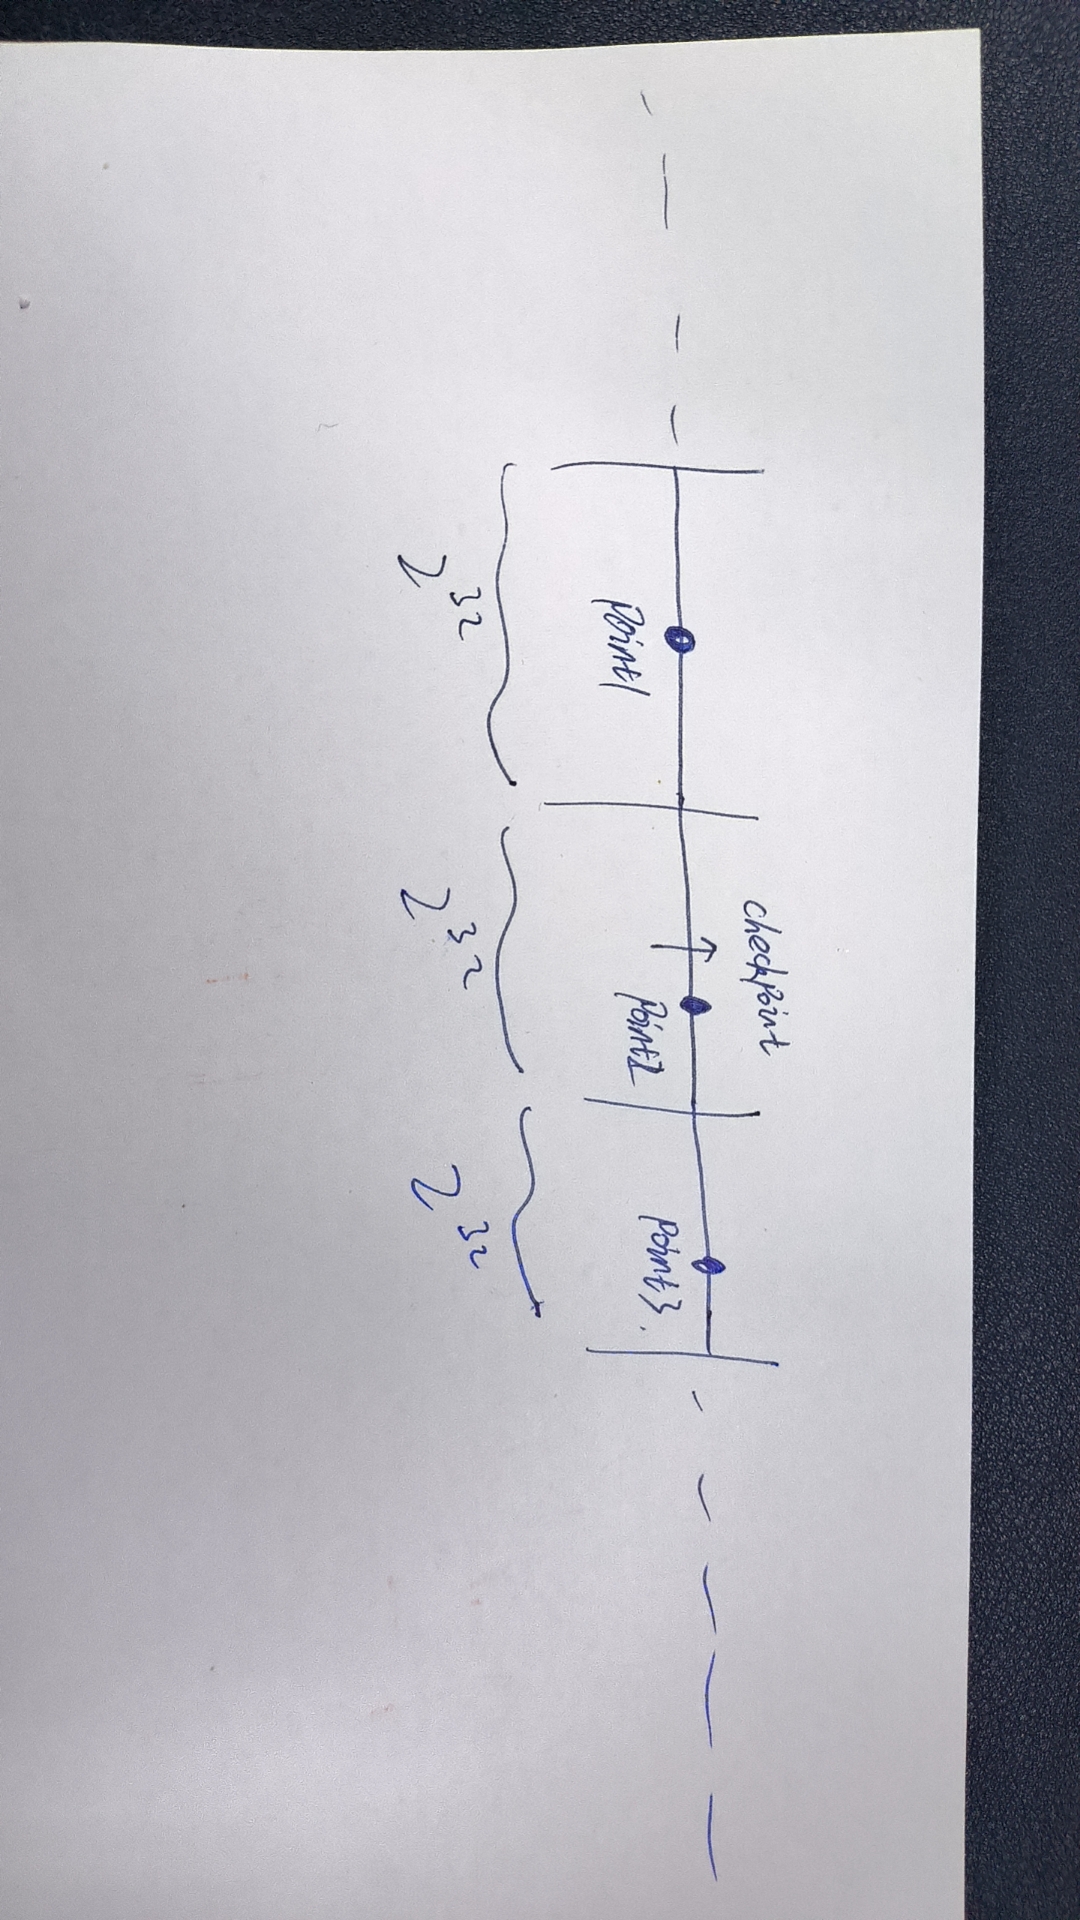 checkPoint
Point1
Point2
Point3.
2^32
2^32
2^32